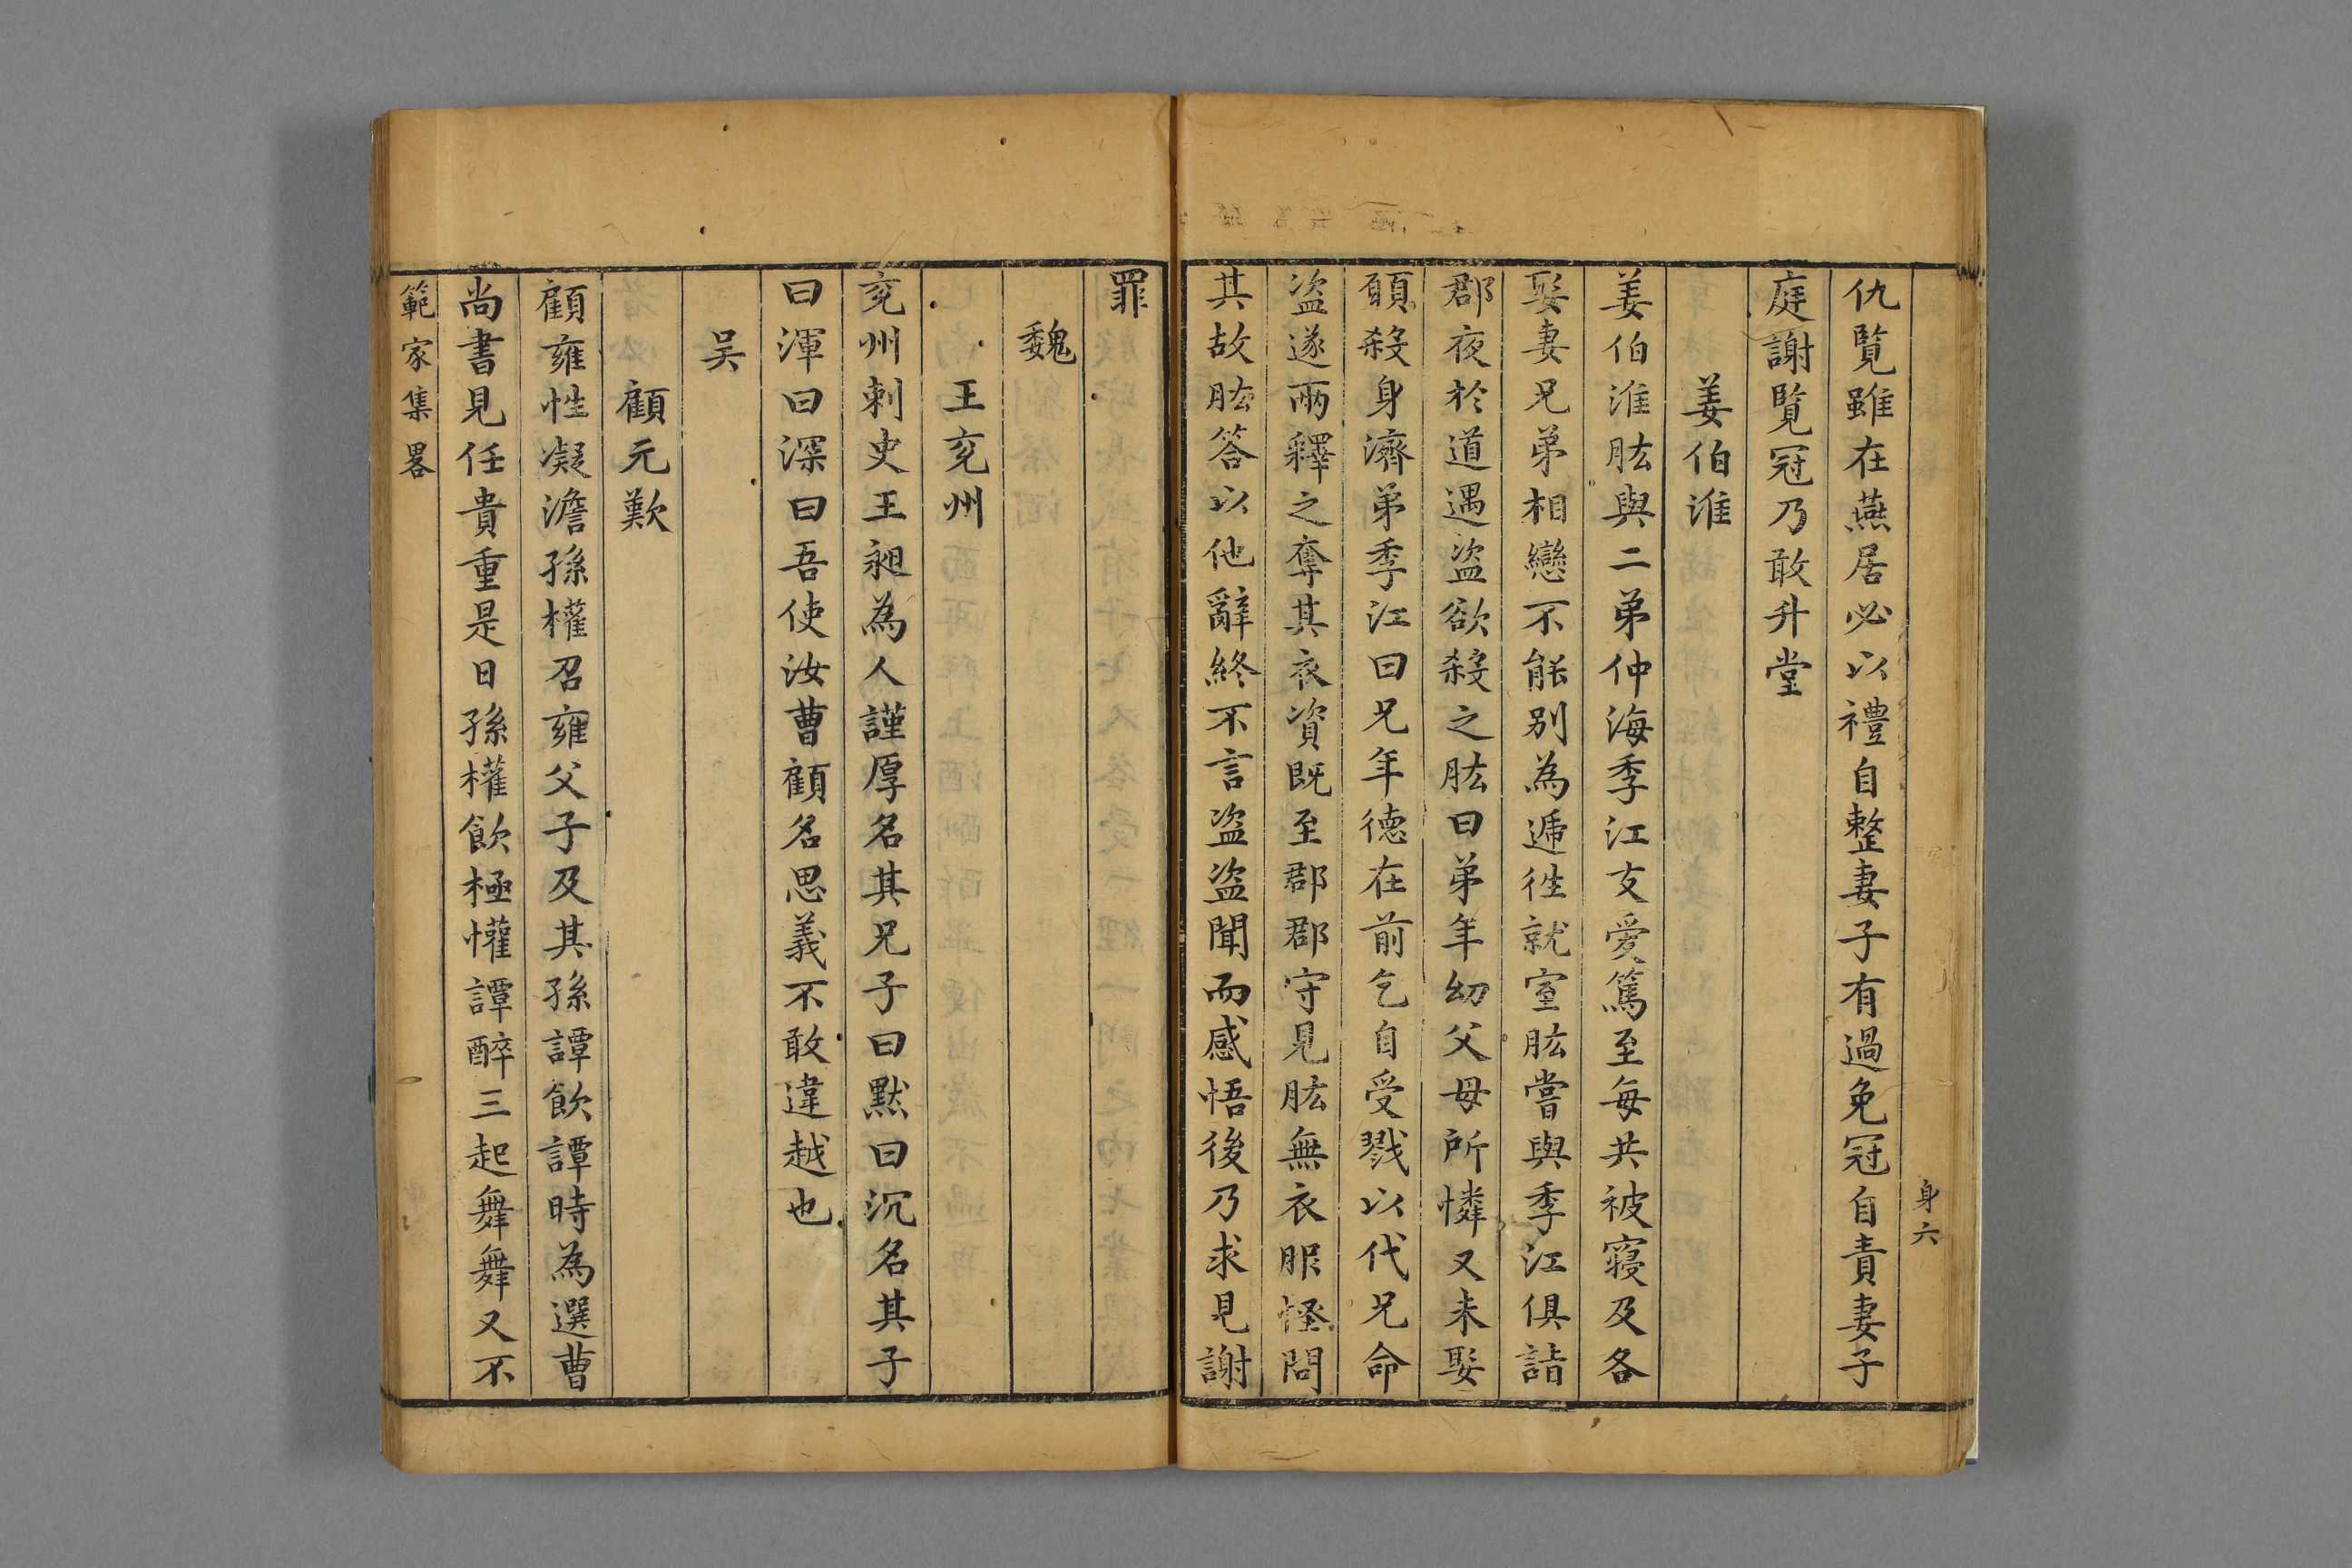 身六
仇覽雖在燕居必以禮自整妻子有過免冠自責妻子
庭謝覽冠乃敢升堂
姜伯淮
姜伯淮肱與二弟仲海季江友愛篤至每共被寢及各
娶妻兄弟相戀不能別為遞徃就室肱嘗與季江俱詣
郡夜於道遇盜欲殺之肱曰弟年幼父母所憐又未娶
願殺身濟弟季江曰兄年德在前乞自受戮以代兄命
盜遂兩釋之奪其衣資既至郡郡守見肱無衣服怪問
其故肱答以他辭終不言盜盜聞而感悟後乃求見謝
罪
魏
王兗州
兗州刺史王昶為人謹厚名其兄子曰默曰沉名其子
曰渾曰深曰吾使汝曹顧名思義不敢違越也
吴
顧元歎
顧雍性凝澹孫權召雍父子及其孫譚飲譚時為選曹
尚書見任貴重是日孫權飲極懽譚醉三起舞舞又不
範家集畧